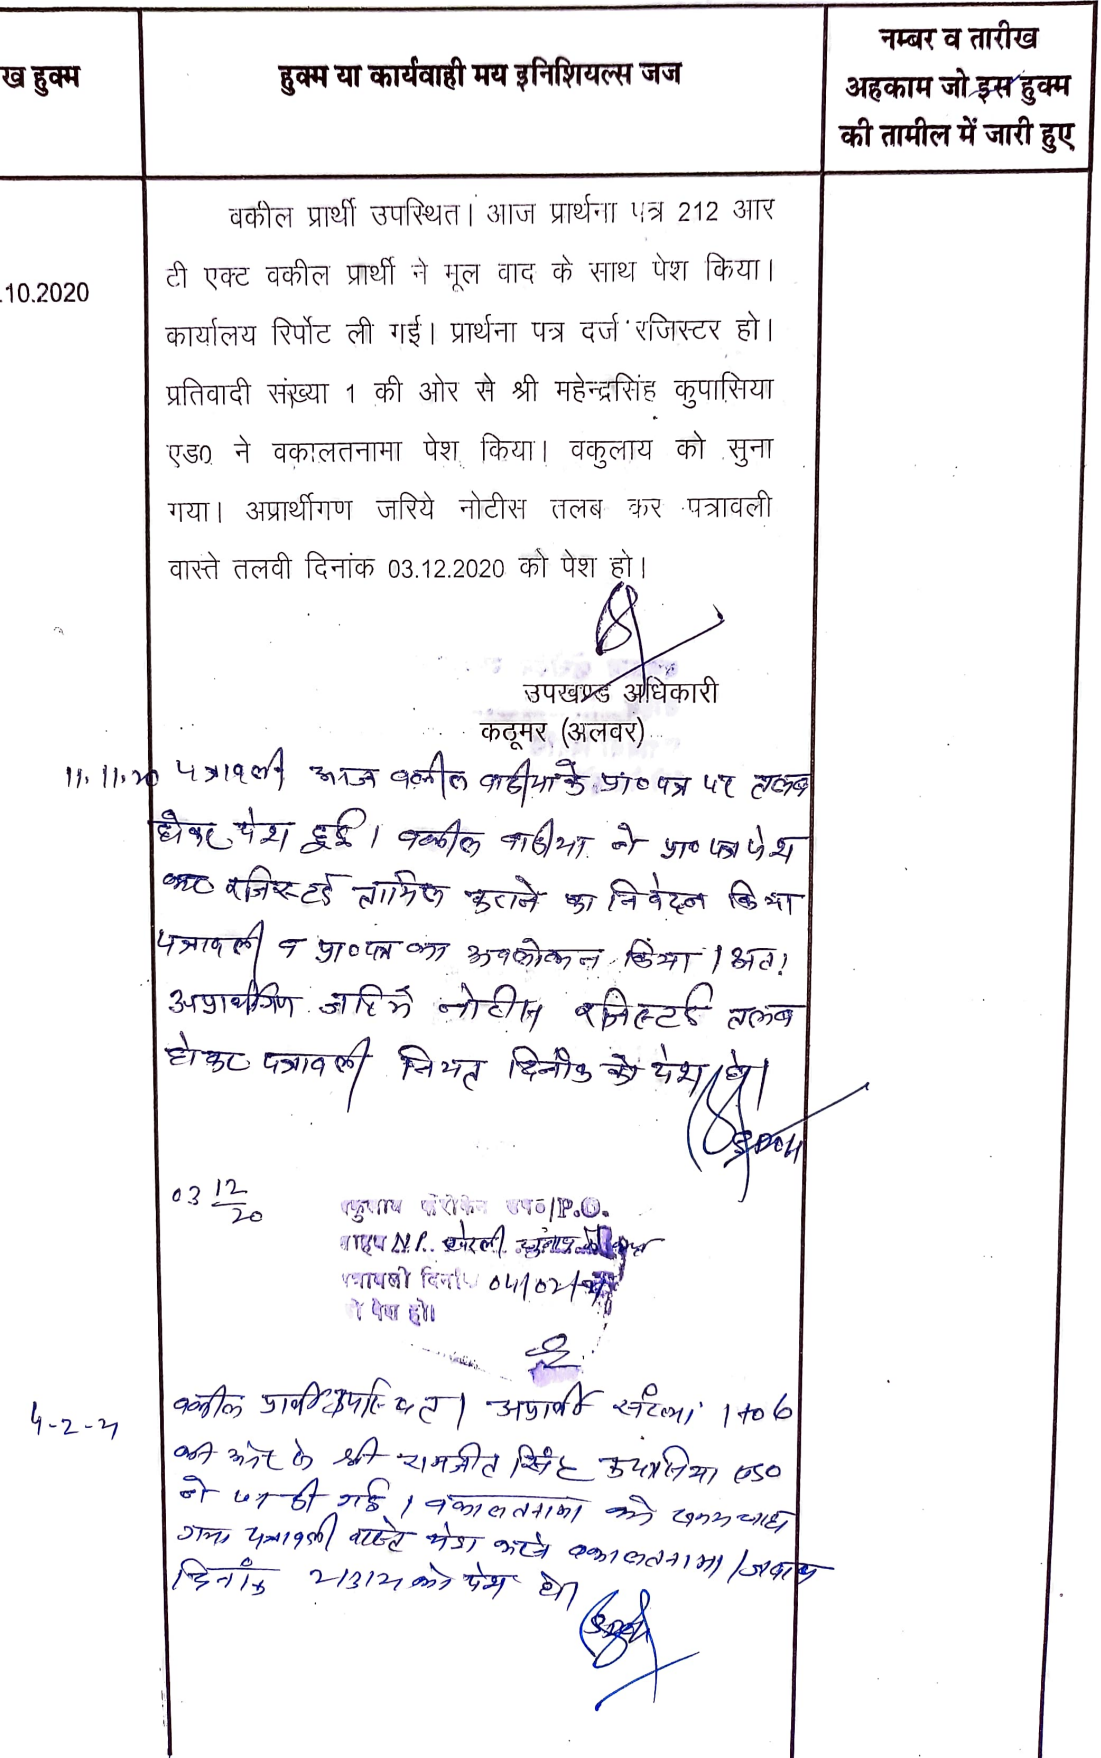 ख हुक्म
हुक्म या कार्यवाही मय इनिशियल्स जज
नम्बर व तारीख
अहकाम जो इस हुक्म
की तामील में जारी हुए
.10.2020
वकील प्रार्थी उपस्थित। आज प्रार्थना पत्र 212 आर
टी एक्ट वकील प्रार्थी ने मूल वाद के साथ पेश किया।
कार्यालय रिर्पोट ली गई। प्रार्थना पत्र दर्ज रजिस्टर हो।
प्रतिवादी संख्या 1 की ओर से श्री महेन्द्रसिंह कुपासिया
एड० ने वकालतनामा पेश किया। वकुलाय को सुना
गया। अप्रार्थीगण जरिये नोटीस तलब कर पत्रावली
वास्ते तलवी दिनांक 03.12.2020 को पेश हो।
उपखण्ड अधिकारी
कठूमर (अलवर)
11.11.20 पत्रावली आज वकील वादीया के प्रा०पत्र पर तलब
होकर पेश हुई। वकील वादीया ने प्रा० पत्र पेश
कर रजिस्टर्ड तामिल कराने का निवेदन किया
पत्रावली व प्रा०पत्र का अवलोकन किया। अतः
अप्रार्थीगण जरिये नोटीस रजिस्टर्ड तलब
होकर पत्रावली नियत दिनांक को पेश हो।
03 12/20
P.O.
N.P. खेरली चुनाव
पत्रावली दिनांक 04/02/
पेश हो।
4-2-21
वकील प्रार्थी उपस्थित। अप्रार्थी संख्या 1 to 6
की ओर से श्री रामजीत सिंह कुपासिया एड०
ने दी गई। वकालतनामा को समय चाहा
गया पत्रावली वास्ते पेश करने वकालतनामा / जवाब
दिनांक को पेश हो।